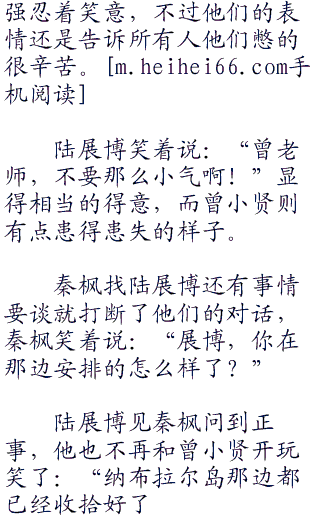 强忍着笑意，不过他们的表
情还是告诉所有人他们憋的
很辛苦。[m.heihei66.com手
机阅读]
陆展博笑着说：“曾老
师，不要那么小气啊！”显
得相当的得意，而曾小贤则
有点患得患失的样子。
秦枫找陆展博还有事情
要谈就打断了他们的对话，
秦枫笑着说：“展博，你在
那边安排的怎么样了？”
陆展博见秦枫问到正
事，他也不再和曾小贤开玩
笑了：“纳布拉尔岛那边都
已经收拾好了